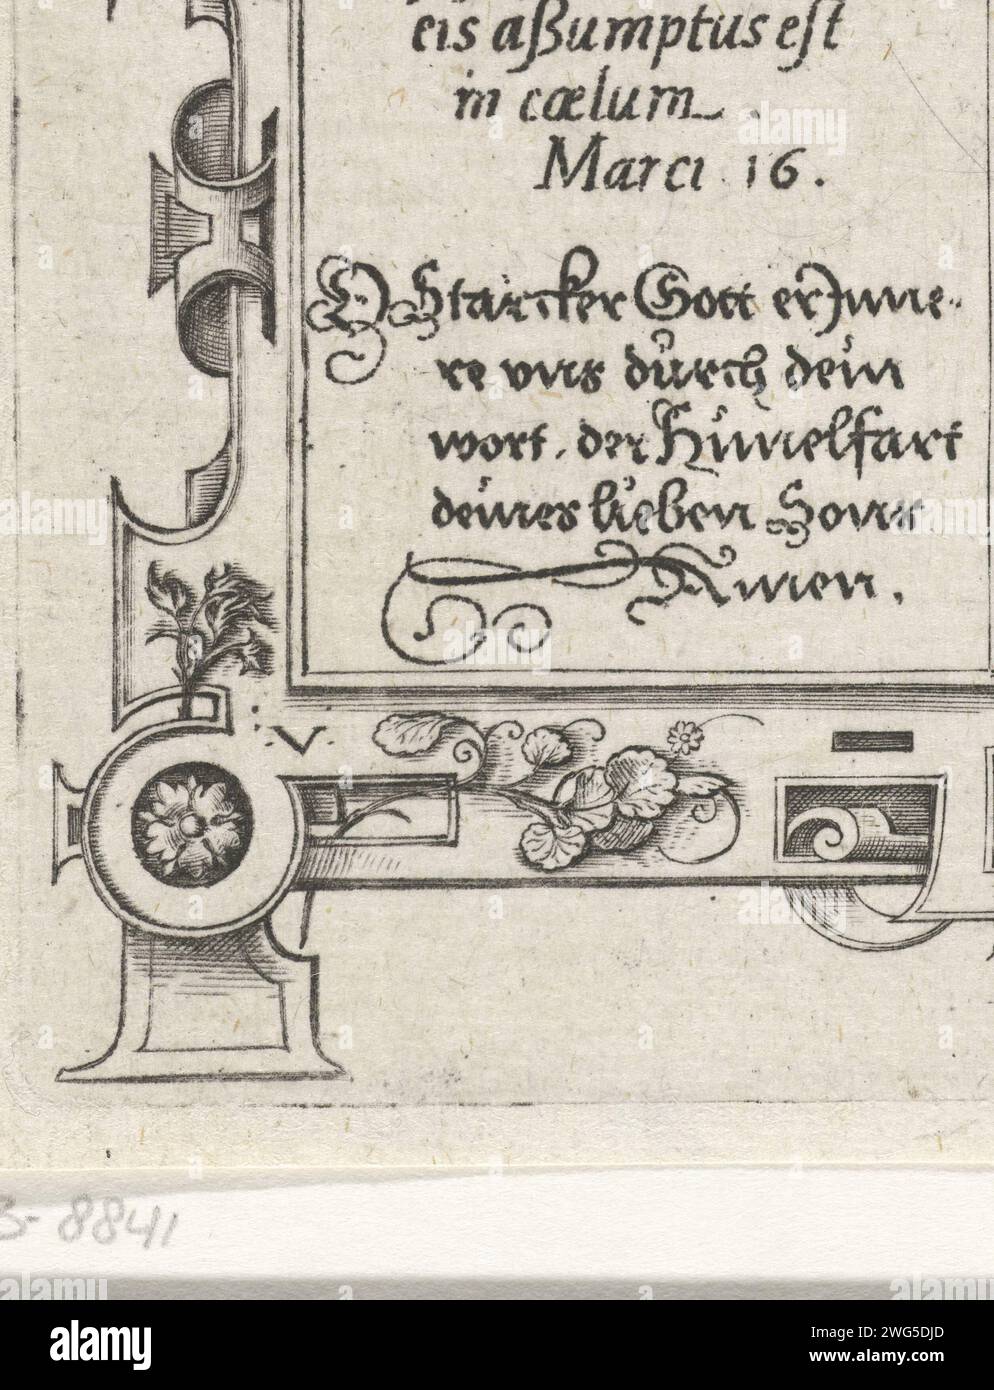 eis aßumptus eſt
in cœlum
Marci 16.
O Starcker Gott er Inne-
re vns durch dein
wort. der Hiimelfart
deines lieben Sons
Amen.
V
8841
alamy
Image ID: 2WG5DJD
www.alamy.com